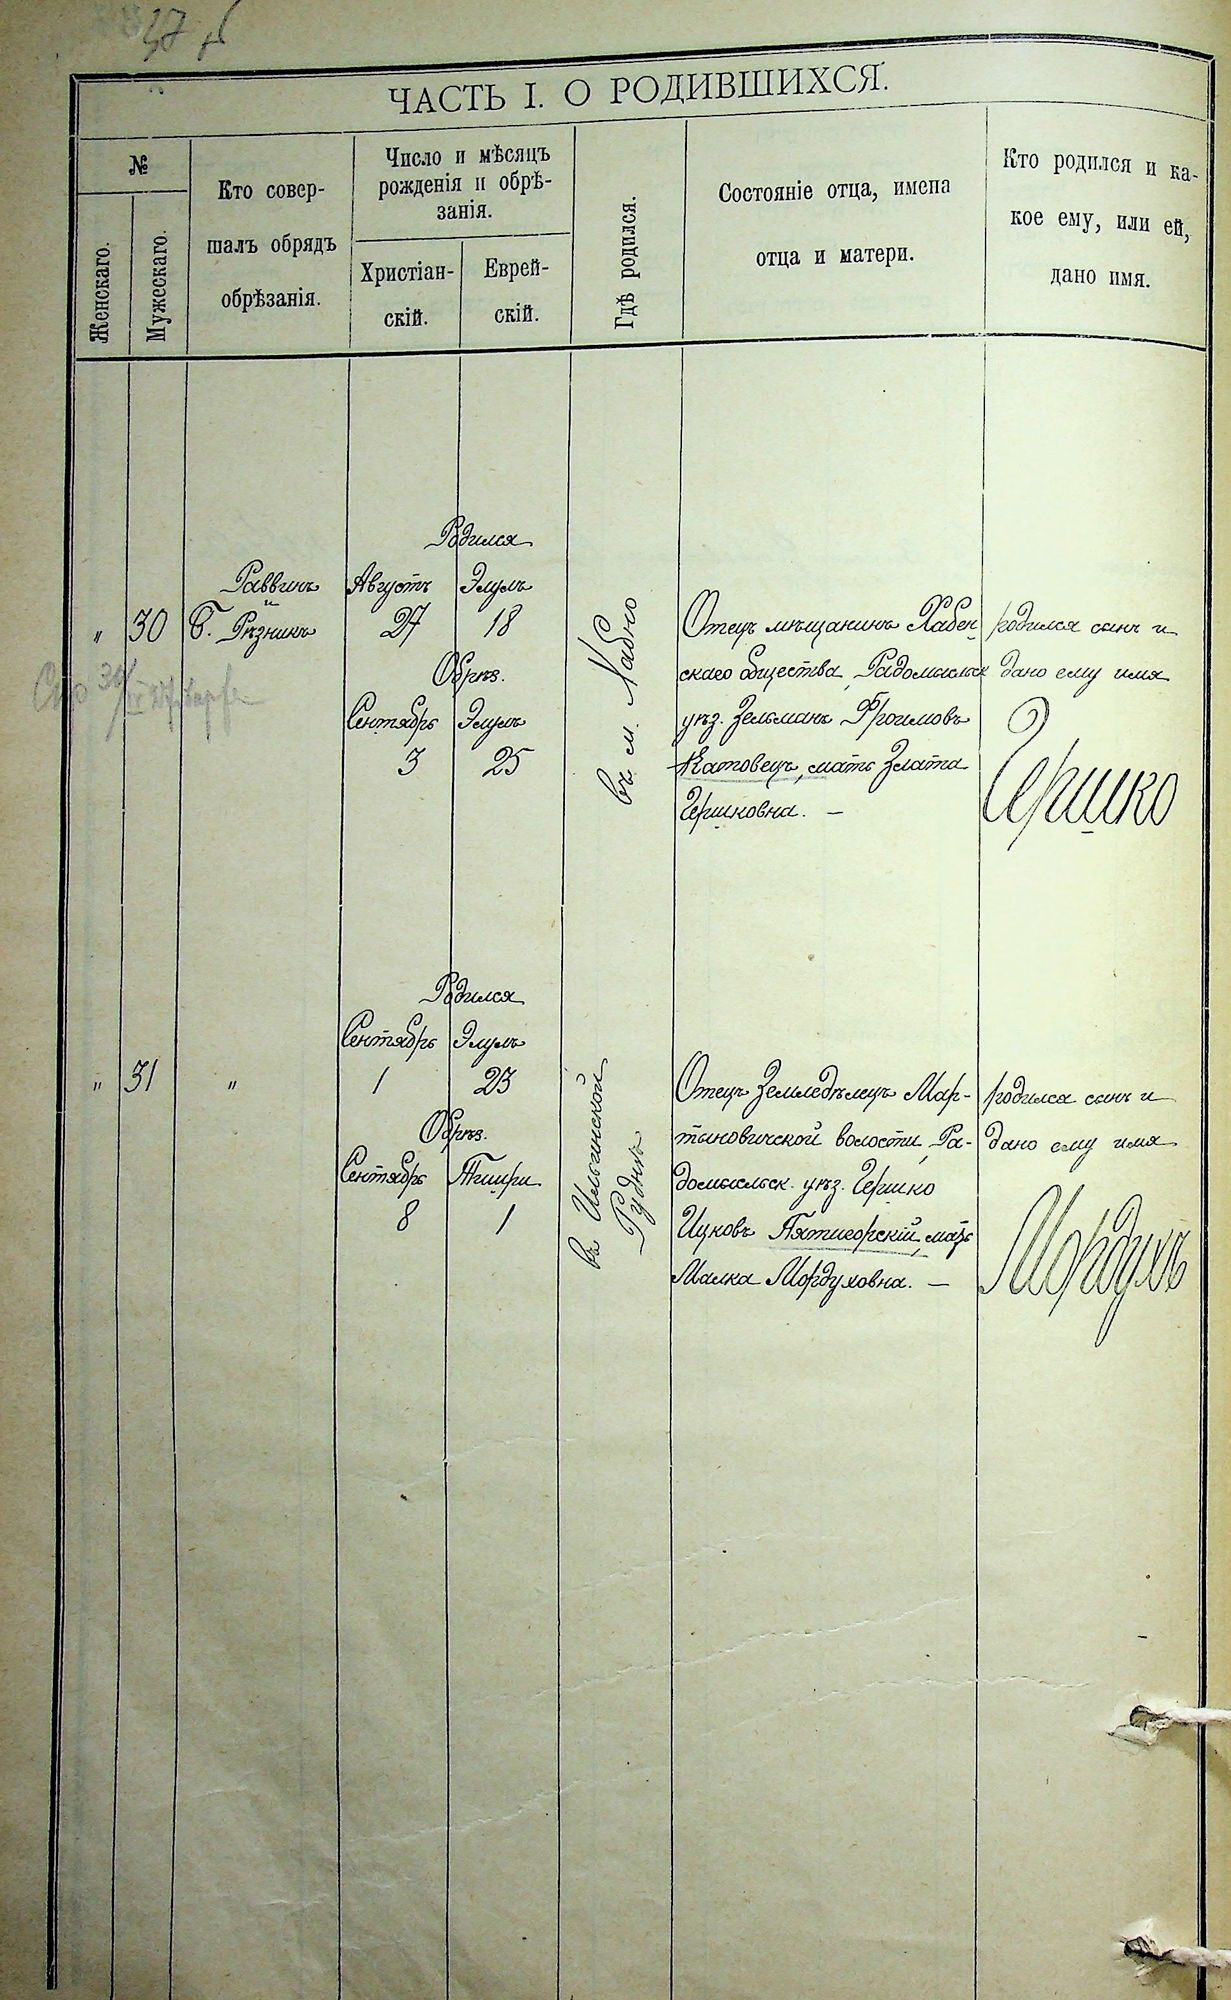 ЧАСТЬ I. О РОДИВШИХСЯ.
№
Женскаго.
Мужескаго.
Кто совер-
шалъ обрядъ
обрѣзанія.
Число и мѣсяцъ
рожденія и обрѣ-
занія.
Христіан-
скій.
Еврей-
скій.
Гдѣ родился.
Состояніе отца, имена
отца и матери.
Кто родился и ка-
кое ему, или ей,
дано имя.
"
30
Раввинъ
и
Б. Рѣзникъ
Родился
Августъ Элулъ
27 18
Обрѣз.
Сентябрь Элулъ
3 25
въ м. Хабно
Отецъ мѣщанинъ Хабен
скаго общества, Радомысльск
уѣз. Зельманъ Фроимовъ
Катовецъ, мать Злата
Гершковна. —
родился сынъ и
дано ему имя
Гершко
"
31
"
Родился
Сентябрь Элулъ
1 23
Обрѣз.
Сентябрь Тишри
8 1
въ Ильинской
Руднѣ
Отецъ Земледѣлецъ Мар-
тыновичской волости, Ра-
домысльск. уѣз. Гершко
Ицковъ Пятигорскій, мать
Малка Мордуховна. —
родился сынъ и
дано ему имя
Мордухъ